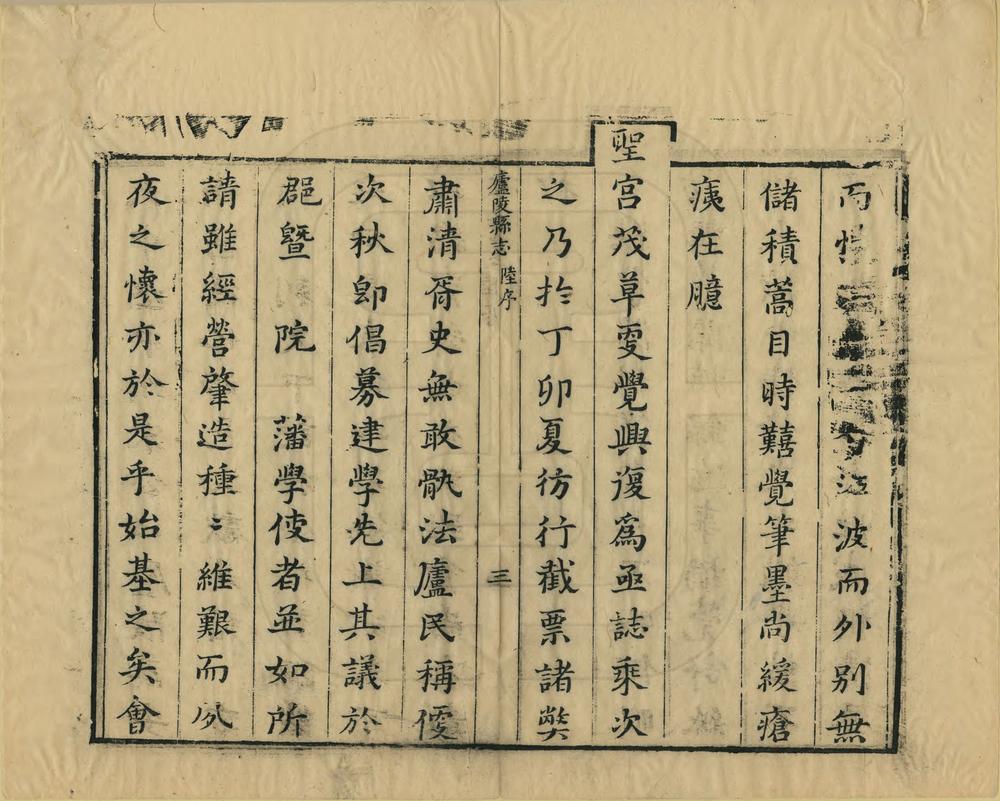 而　波而外别無
儲積蒿目時囏覺筆墨尚緩瘡
痍在臆
聖宮茂草更覺興復爲亟誌乘次
之乃扵丁卯夏彷行截票諸獘
廬陵縣志　陸序　三
肅清胥史無敢骩法廬民稱便
次秋卽倡募建學先上其議於
郡暨　院　藩學使者並如所
請雖經營肇造種〻維艱而夙
夜之懷亦於是乎始基之矣會